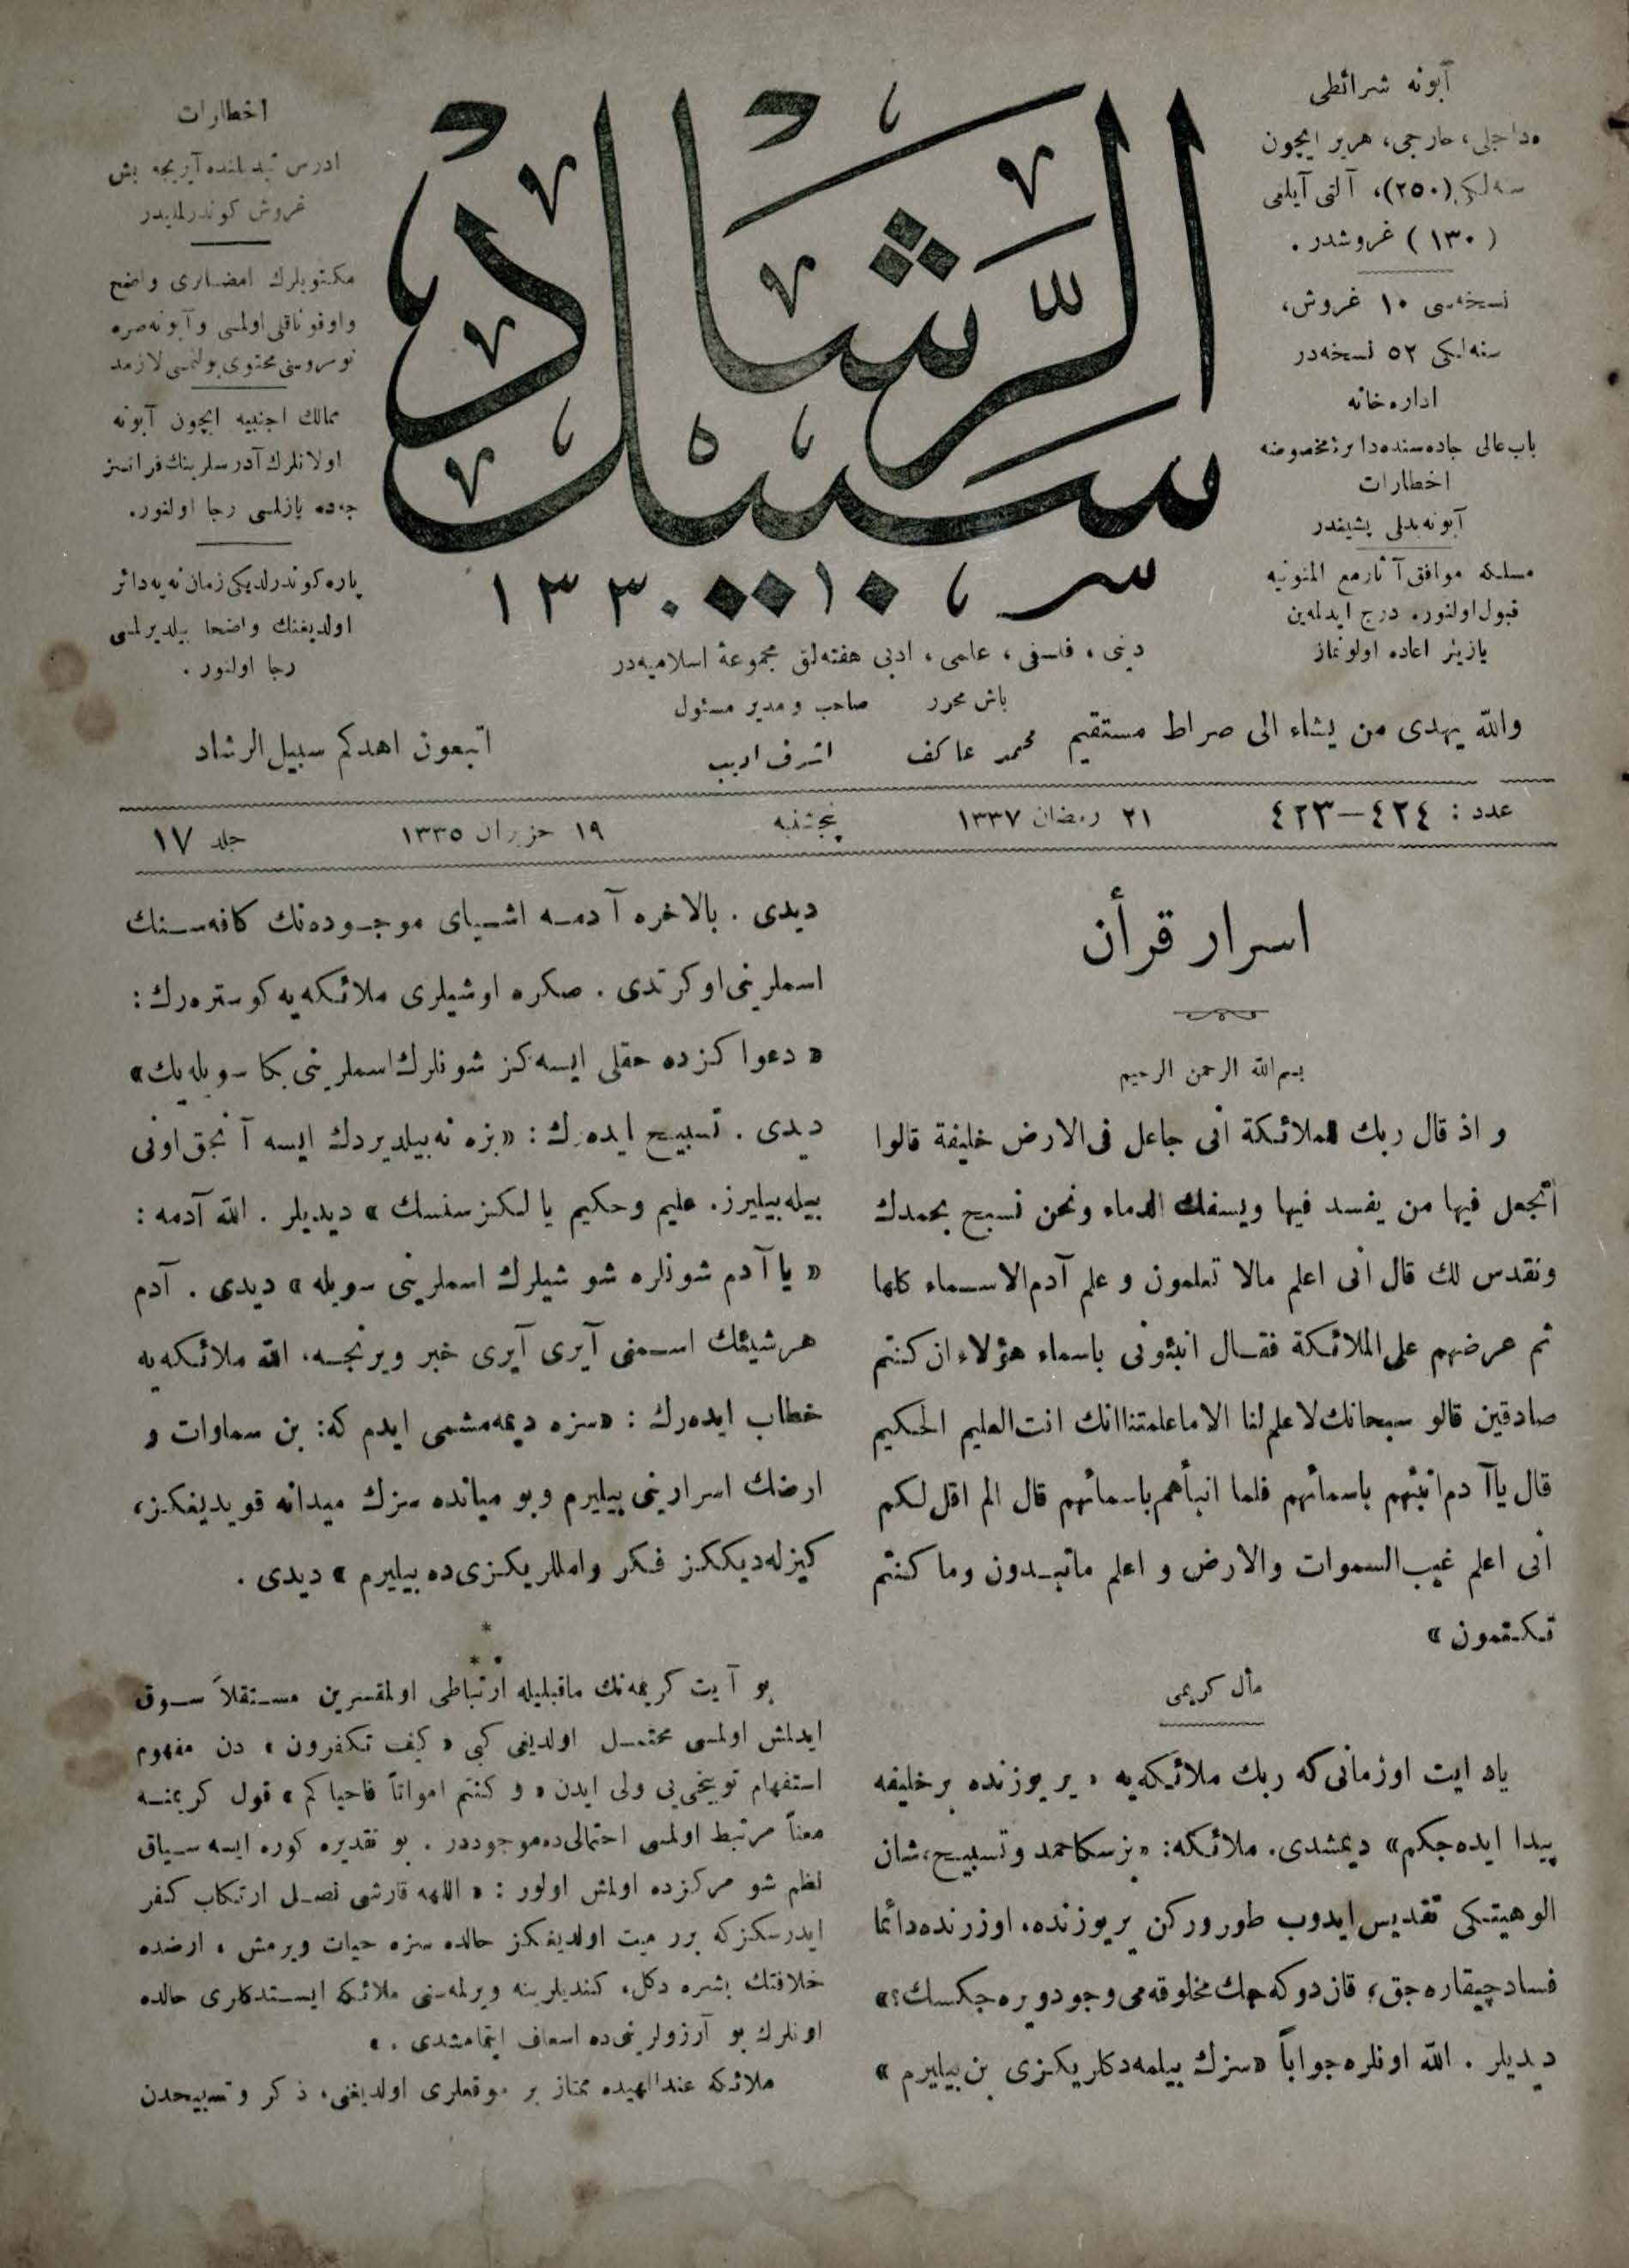 آبونه شرائطی
داخلی، خارجی، هر یر ایچون
سنه‌لکی (٢٥٠)، آلتی آیلغی
(١٣٠) غروشدر.
نسخه‌سی ١٠ غروش،
سنه‌لکی ٥٢ نسخه‌در
اداره‌خانه
باب عالی جاده‌سنده دائرهٔ مخصوصه
اخطارات
آبونه بدلی پشیندر
مسلکه موافق آثار مع الممنونیه
قبول اولنور. درج ایدلمه‌ین
یازیلر اعاده اولونماز
سبیل الرشاد
١٣٣٠
اخطارات
ادرس تبدیلنده آیریجه بش
غروش کوندرلملیدر
مکتوبلرك امضالری واضح
واوقوناقلی اولمسی و آبونه صره
نومروسنی محتوی بولنمسی لازمدر
ممالك اجنبیه ایچون آبونه
اولانلرك آدرسلرینك فرانسز
جه‌ده یازلمسی رجا اولنور.
پاره کوندرلدیکی زمان نه‌یه دائر
اولدیغنك واضحا بیلدیرلمسی
رجا اولنور.
دینی، فلسفی، علمی، ادبی هفته‌لق مجموعهٔ اسلامیه‌در
باش محرر
صاحب و مدیر مسئول
والله یهدی من یشاء الی صراط مستقیم
محمد عاکف
اشرف ادیب
اتبعون اهدکم سبیل الرشاد
عدد : ٤٢٤—٤٢٣
٢١ رمضان ١٣٣٧
پنجشنبه
١٩ حزیران ١٣٣٥
جلد ١٧
اسرار قرأن
بسم الله الرحمن الرحیم
و اذ قال ربك للملائکة انی جاعل فی الارض خلیفة قالوا
أتجعل فیها من یفسد فیها ویسفك الدماء ونحن نسبح بحمدك
ونقدس لك قال انی اعلم مالا تعلمون و علم آدم الاسماء کلها
ثم عرضهم علی الملائکة فقال انبئونی باسماء هؤلاء ان کنتم
صادقین قالو سبحانك لاعلم لنا الا ماعلمتنا انك انت العلیم الحکیم
قال یاآدم انبئهم باسمائهم فلما انبأهم باسمائهم قال الم اقل لکم
انی اعلم غیب السموات والارض و اعلم ماتبدون وما کنتم
تکتمون »
مأل کریمی
یاد ایت اوزمانی که ربك ملائکه‌یه « یر یوزنده بر خلیفه
پیدا ایده‌جکم» دیمشدی. ملائکه: «بز سکا حمد و تسبیح، شان
الوهیتکی تقدیس ایدوب طورورکن یر یوزنده، اوزرنده دائما
فساد چیقاره‌جق، قان دوکه‌جك مخلوقه‌می وجود ویره‌جکسك؟»
دیدیلر. الله اونلره جواباً «سزك بیلمه‌دکلریکزی بن بیلیرم»
دیدی. بالاخره آدمه اشیای موجوده‌نك کافه‌سنك
اسملرینی اوکرتدی. صکره اوشیلری ملائکه‌یه کوستره‌رك:
« دعواکزده حقلی ایسه‌کز شونلرك اسملرینی بکا سویله‌یك»
دیدی. تسبیح ایده‌رك: «بزه نه بیلدیردك ایسه آنجق اونی
بیله‌بیلیرز. علیم وحکیم یالکز سنسك» دیدیلر. الله آدمه:
« یاآدم شونلره شو شیلرك اسملرینی سویله» دیدی. آدم
هرشیئك اسمنی آیری آیری خبر ویرنجه، الله ملائکه‌یه
خطاب ایده‌رك: «سزه دیمه‌مشمی ایدم که: بن سماوات و
ارضك اسرارینی بیلیرم وبو میانده سزك میدانه قویدیغکز،
کیزله‌دیککز فکر واملللریکزی‌ده بیلیرم» دیدی.
* * *
بو آیت کریمه‌نك ماقبلیله ارتباطی اولمقسزین مستقلاً سوق
ایدلمش اولمسی محتمل اولدیغی کبی « کیف تکفرون » دن مفهوم
استفهام توبیخی‌یی ولی ایدن « و کنتم امواتاً فاحیاکم » قول کریمنه
معناً مرتبط اولمسی احتمالی‌ده موجوددر. بو تقدیره کوره ایسه سیاق
نظم شو مرکزده اولمش اولور: « اللهه قارشی نصل ارتکاب کفر
ایدرسکزکه برر میت اولدیغکز حالده سزه حیات ویرمش، ارضده
خلافتك بشره دکل، کندیلرینه ویرلمه‌سنی ملائکه ایستدکلری حالده
اونلرك بو آرزولرینی‌ده اسعاف ایتمامشدی. »
ملائکه عند الهیده ممتاز بر موقعلری اولدیغنی، ذکر و تسبیحدن